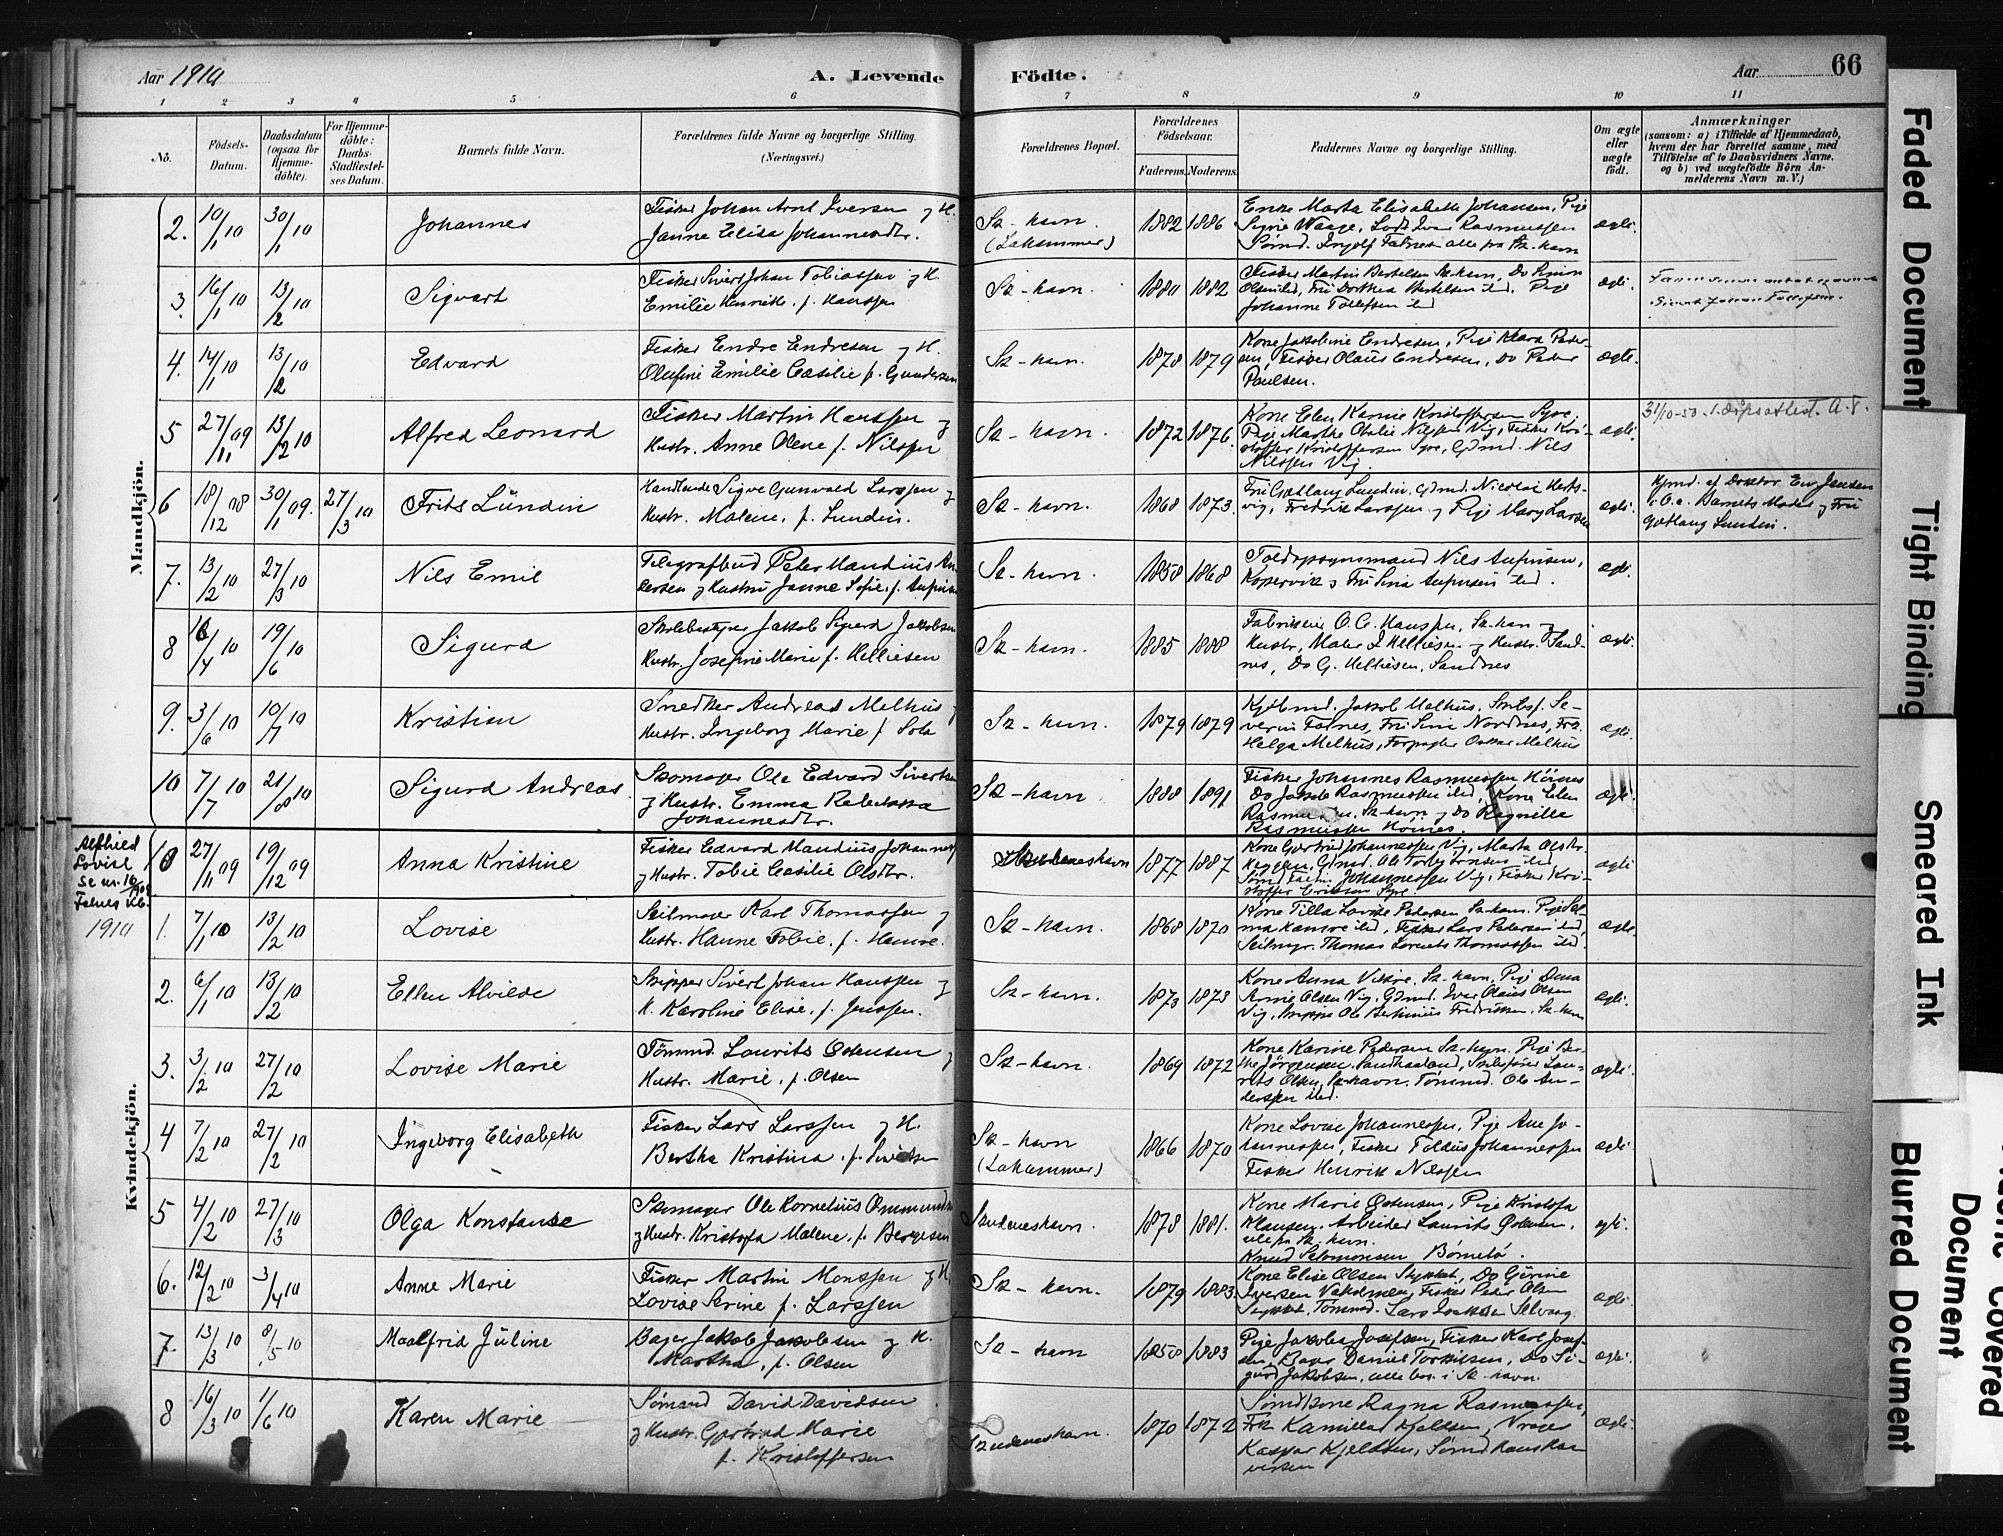 Aar 1910
A. Levende
Födte.
Aar
66
1 2 3 4 5 6 7 8 9 10 11
No.
Födsels-Datum.
Daabsdatum (ogsaa for Hjemme-döbte).
For Hjemme-döbte: Daabs-Stadfæstel-ses Datum.
Barnets fulde Navn.
Forældrenes fulde Navne og borgerlige Stilling. (Næringsvei.)
Forældrenes Bopæl.
Forældrenes Födselsaar.
Faderens. Moderens.
Faddernes Navne og borgerlige Stilling.
Om ægte eller uægte födt.
Anmærkninger
(saasom: a) i Tilfælde af Hjemmedaab, hvem der har forrettet samme, med Tilföielse af to Daabsvidners Navne, og b) ved uægtefödte Börn An-melderens Navn m. V.)
Mandkjön.
2. 10/1 10 30/1 10 Johannes
Fisker Johan Arnt Iversen og H.
Janne Elisa Johannesdtr.
Sk-havn (Lahammer) 1882 1886
Enke Marta Elisabeth Johansen, Pige
Signe Waage, Lods Ivar Rasmussen
Sömd. Ingolf Falnes alle fra Sk-havn
ægte.
3. 16/1 10 13/2 10 Sigvart
Fisker Sivert Johan Tobiassen og H.
Emilie Henrikke, f. Hanssen
Sk-havn. 1880 1882
Fisker Martin Bertelsen Sk-havn, Do Simon
Olsen ibd, Fru Dorthea Bertelsen ibd, Pige
Johanne Tollefsen ibd
ægte.
4. 14/1 10 13/2 10 Edvard
Fisker Endre Endresen og H.
Olufine Emilie Cæsilie f. Gundersen
Sk-havn. 1878 1879
Kone Jakobine Endresen, Pige Klara Peder-
sen, Fisker Olaus Endresen, Do Peder
Paulsen.
ægte.
5 27/11 09 13/2 10 Alfred Leonard
Fisker Martin Hanssen og
Hustr. Anne Olene f. Nilssen
Sk-havn. 1872 1876.
Kone Elen Karine Kristoffersen Syre,
Pige Marthe Otalie Nilssen Vig, Fisker Kri-
stoffer Kristoffersen Syre, Gdmd. Nils
Nilssen Vig.
ægte.
31/10-50. 1. dåpsattest. A.F.
6 18/12 08 30/1 09. 27/3 10 Frits Lundin
Handlende Sigve Gunvald Larssen og
Hustr. Malene, f. Lundin.
Sk-havn. 1868 1873.
Fru Gøthaug Lundin. Gdmd. Nicolai Herts-
vig, Fredrik Larssen og Pige Mary Larsen
ægte.
Hjmd. af Doktor Eiv. Jensen
Barnets Moder og Fru
Gøthaug Lundin.
7. 13/2 10 27/3 10 Nils Emil
Telegrafbud Peter Mandius An-
dersen og Hustru Janne Sofie, f. Aufinsen
Sk-havn. 1858 1868
Toldopsynsmand Nils Aufinsen,
Kopervik og Fru Sina Aufinsen ibd.
ægte.
8 16/4 10 19/6 10 Sigurd
Skolebestyrer Jakob Sigurd Jakobsen
Hustr. Josefine Marie f. Helliesen
Sk-havn. 1885 1888
Fabrikeier O. C. Hanssen, Sk-havn og
Hustr, Maler I Helliesen og Hustr. Sand-
nes, Do G. Helliesen, Sandnes
ægte.
9. 3/6 10 10/7 10 Kristian
Snedker Andreas Melhus og
Hustr. Ingeborg Marie f. Sola
Sk-havn. 1879 1879
Kjöbmd. Jakob Melhus, Skibsf. Se-
verin Falnes, Fru Sina Nordnes, Frk.
Helga Melhus, Forpagter Oskar Melhus
ægte.
10 7/7 10 21/8 10 Sigurd Andreas.
Skomager Ole Edvard Sivertsen
og Hustr. Emma Rebekka
Johannesdtr.
Sk-havn 1888 1891
Fisker Johannes Rasmussen Höines
Do Jakob Rasmussen ibd, Kone Elen
Rasmussen, Sk-havn og Do Ragnille
Rasmussen Höines.
ægte.
Kvindekjön.
Alfhied
Lovise
se nr. 16
1909
Falnes kb.
1910
10 27/11 09 19/12 09 Anna Kristine
Fisker Edvard Mandius Johannesen
og Hustr. Tobie Cæsilie Olsdtr.
Skudeneshavn 1877 1887
Kone Gjertrud Johannessen Vig, Marta Olsdtr.
Johannessen Vig, Fisker Kri-
stoffer Eriksen Syre.
ægte
1. 7/1 10 13/2 10 Lovise
Seilmager Karl Thomassen og
Hustr. Hanne Tobie, f. Hamre.
Sk-havn. 1868 1870
Kone Tilla Lovise Pedersen Sk-havn. Pige Sel-
ma Hamre ibd, Fisker Lars Pedersen ibd,
Seilmgr. Thomas Lornts Thomassen ibd.
ægte
2. 6/1 10 13/2 10 Ellen Alvilde
Skipper Sivert Johan Hanssen og
H. Karoline Elise, f. Jenssen.
Sk-havn. 1873 1873
Kone Anna Vikre, Sk-havn, Pige Dina
Amie Olsen Vig, Gdmd. Ivar Olaus Olsen
Vig, Skipper Ole Bertinius Fredriksen, Sk-havn
ægte.
3. 3/2 10 27/2 10 Lovise Marie
Tömmd. Laurits Ostensen og
Hustr. Marie, f. Olsen
Sk-havn. 1869 1872
Kone Karine Pedersen Sk-havn. Pige Ber-
the Jörgensen, Sandhaaland, Skibsförer Lau-
rits Olsen, Sk-havn. Tömmd. Ole An-
derssen ibd.
ægte.
4 7/2 10 27/2 10 Ingeborg Elisabeth
Fisker Lars Larssen og H.
Bertha Kristina, f. Sivertsen
Sk-havn (Lahammer) 1866 1870
Kone Lovise Johannessen, Pige Ane Jo-
hannessen, Fisker Tobias Johannessen
Fisker Henrik Nilssen
ægte
5 4/2 10 27/3 10 Olga Konstanse
Skomager Ole Kornelius Ommundsen
og Hustr. Kristofa Malene, f. Bergesen
Skudeneshavn. 1878 1881.
Kone Marie Ostensen, Pige Kristofa
Klausen. Arbeider Laurits Ostensen,
alle fra Sk-havn.
Knud Salomonsen, Börnetö.
ægte.
6. 12/2 10 3/4 10 Anne Marie
Fisker Martin Monssen og H.
Lovise Serine f. Larssen
Sk-havn. 1879 1883
Kone Elise Olsen Stykket, Do Gurine
Iversen Vaholmen, Fisker Peder Olsen
Stykket, Tömmd. Lars Isaksen Selvaag
ægte.
7. 13/3 10 8/5 10 Maalfrid Juline
Bager Jakob Jakobsen og H.
Martha, f. Olsen
Sk-havn 1858 1883
Pige Jakobea Josefsen, Fisker Karl Josef-
sen, Bager Daniel Torkilsen, Do Si-
gurd Jakobsen, alle bos. i Sk-havn.
ægte.
8 16/3 10 1/6 10 Karen Marie
Sömand David Davidsen
og Hustr. Gjertrud Marie
f. Kristoffersen
Skudeneshavn. 1870 1872
Sömd.kone Ragna Rasmussen,
Frk. Kamilla Kjeldsen, Vrager
Kaspar Kjeldsen, Sömd. Hans Kaa
versen
ægte.
Faded Document
Tight Binding
Smeared Ink
Blurred Document
Document
Covered